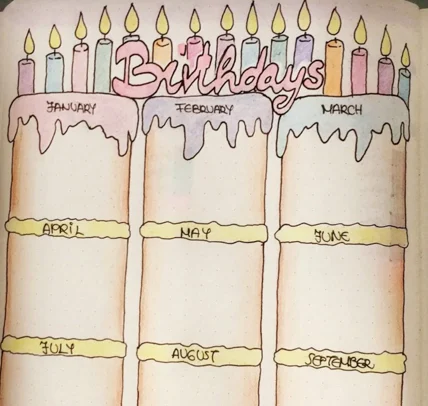 Birthdays
JANUARY
FEBRUARY
MARCH
APRIL
MAY
JUNE
JULY
AUGUST
SEPTEMBER